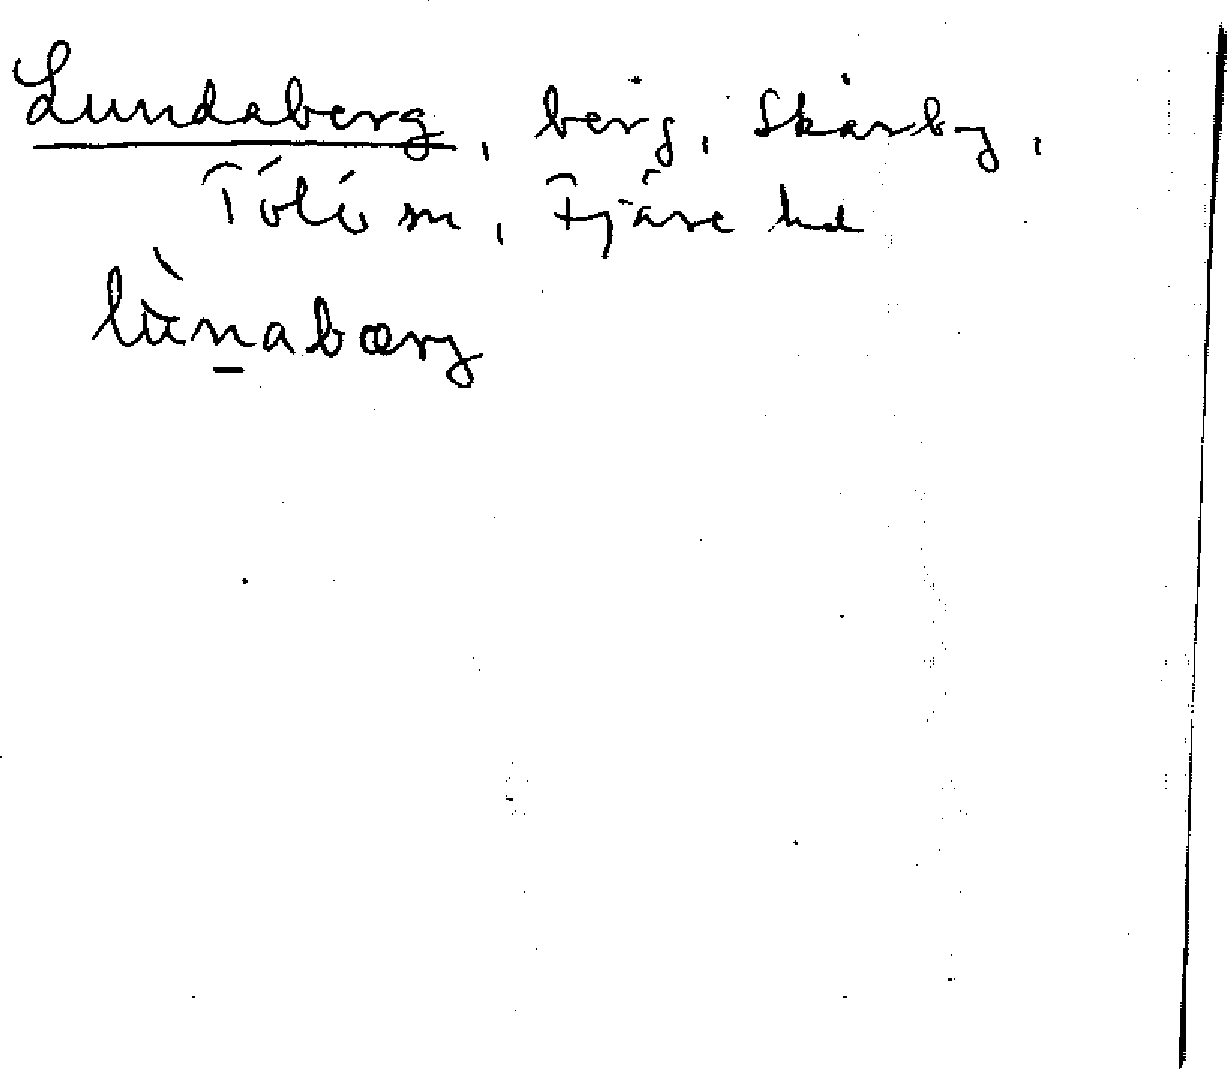 Lundaberg, berg, Skårby,
Tölö sn, Fjäre hd
lùnabærg